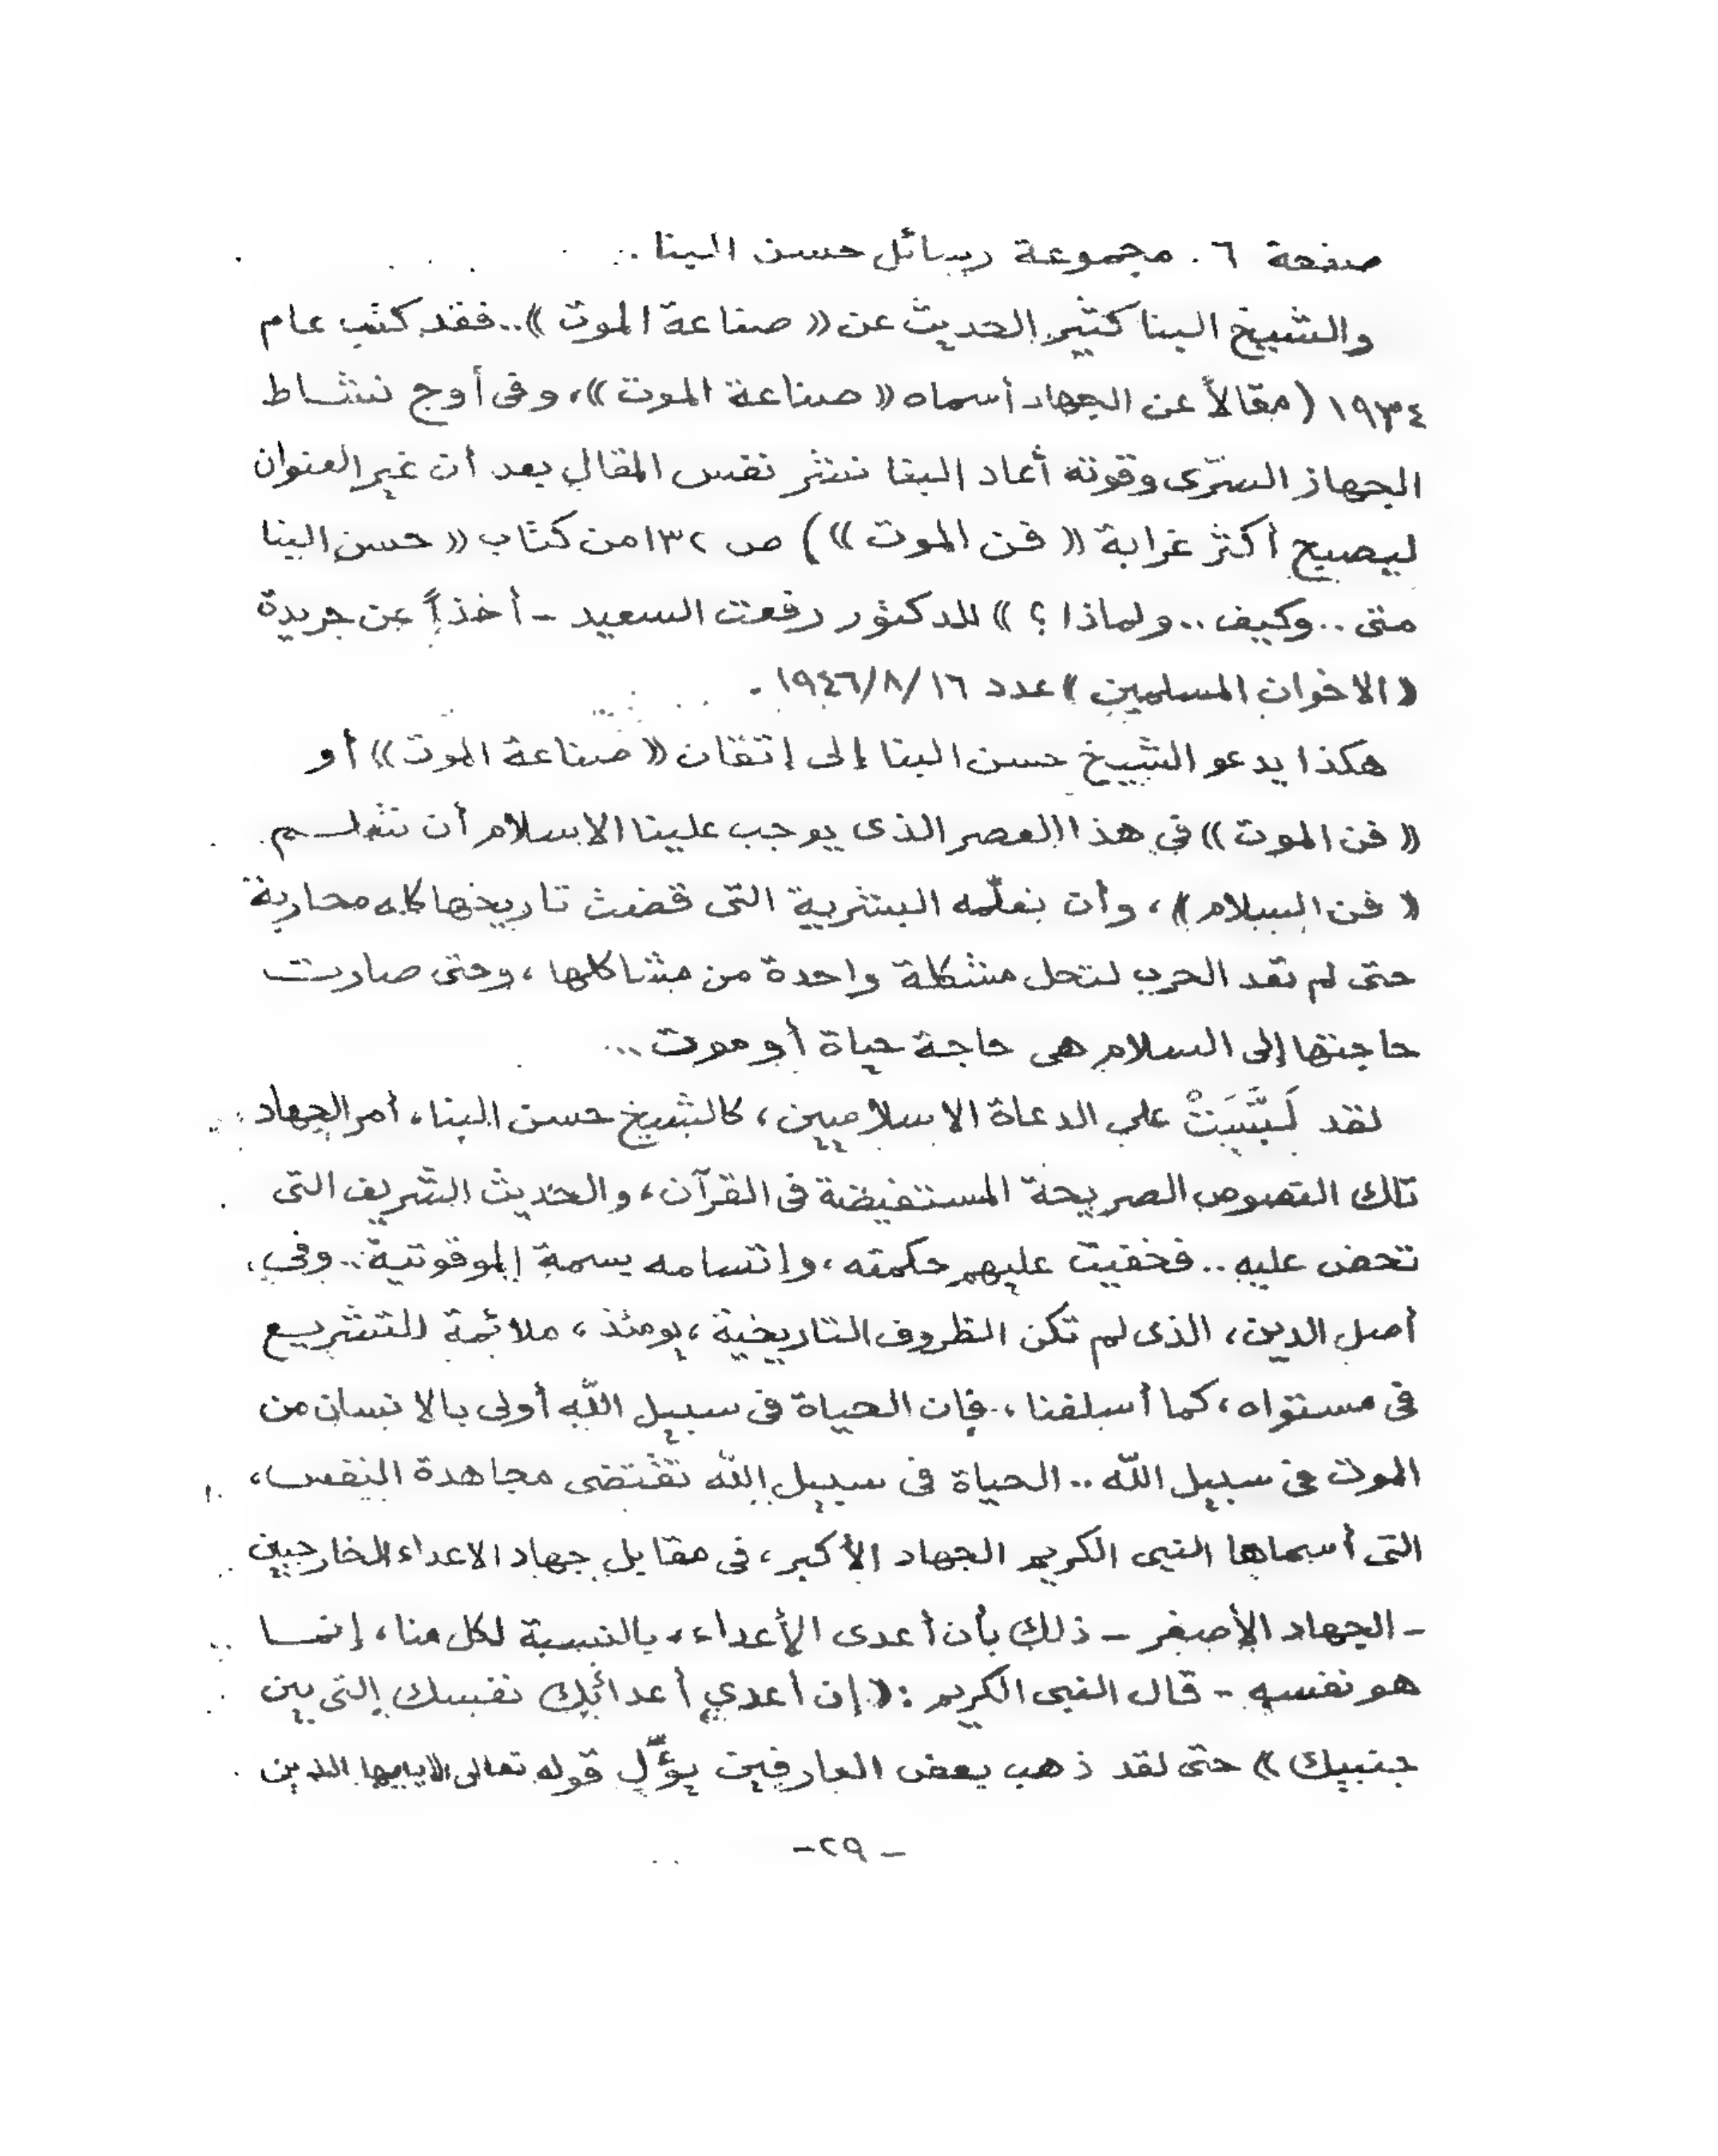 صفحة ٦٠ مجموعة رسائل حسن البنا .
والشيخ البنا كثير الحديث عن « صناعة الموت »..فقد كتب عام
١٩٣٤ (مقالاً عن الجهاد أسماه « صناعة الموت »، وفى أوج نشاط
الجهاز السرّى وقوته أعاد البنا نشر نفس المقال بعد أن غير العنوان
ليصبح أكثر غرابة « فن الموت ») ص ١٣٢ من كتاب « حسن البنا
متى ..وكيف ..ولماذا ؟ » للدكتور رفعت السعيد - أخذاً عن جريدة
« الاخوان المسلمين » عدد ١٩٤٦/٨/١٦ .
هكذا يدعو الشيخ حسن البنا إلى إتقان « صناعة الموت » أو
« فن الموت » في هذا العصر الذى يوجب علينا الاسلام أن نتعلم
« فن السلام »، وأن نعلّمه البشرية التى قضت تاريخها كله محاربة
حتى لم تعد الحرب لتحل مشكلة واحدة من مشاكلها ، وحتى صارت
حاجتها إلى السلام هى حاجة حياة أو موت ...
لقد لَبَّسَتْ على الدعاة الاسلاميين ، كالشيخ حسن البنا، أمر الجهاد
تلك النصوص الصريحة المستفيضة فى القرآن ، والحديث الشريف التى
تحض عليه .. فخفيت عليهم حكمته ، واتسامه بسمة الموقوتية .. وفي
أصل الدين ، الذى لم تكن الظروف التاريخية ، يومئذ ، ملائمة للتشريع
فى مستواه ، كما أسلفنا ، فإن الحياة فى سبيل الله أولى بالانسان من
الموت في سبيل الله .. الحياة فى سبيل الله تقتضى مجاهدة النفس ،
التى أسماها النبى الكريم الجهاد الأكبر ، فى مقابل جهاد الاعداء الخارجيين
- الجهاد الأصغر - ذلك بأن أعدى الأعداء، بالنسبة لكل منا ، إنما
هو نفسه - قال النبى الكريم : « إن أعدي أعدائك نفسك التى بين
جنبيك » حتى لقد ذهب بعض العارفين يؤّل قوله تعالى « يايها الذين
- ٢٩ -